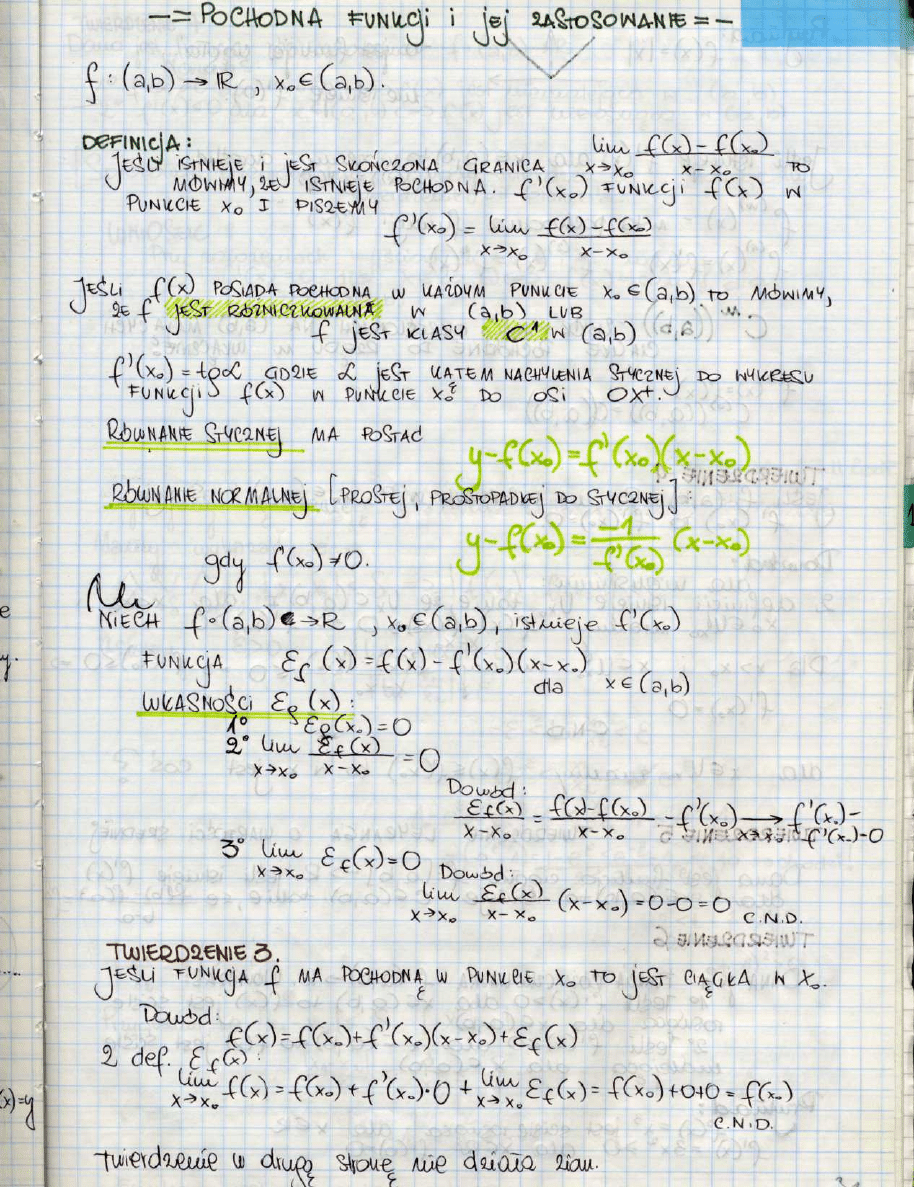 -= POCHODNA FUNKCJI I JEJ ZASTOSOWANIE =-
f : (a,b) → ℝ , x₀ ∈ (a,b).
DEFINICJA:
JEŚLI ISTNIEJE I JEST SKOŃCZONA GRANICA lim x→x₀ (f(x)-f(x₀))/(x-x₀) TO
MÓWIMY, ŻE ISTNIEJE POCHODNA. f'(x₀) FUNKCJI f(x) W
PUNKCIE x₀ I PISZEMY
f'(x₀) = lim x→x₀ (f(x)-f(x₀))/(x-x₀)
JEŚLI f(x) POSIADA POCHODNĄ W KAŻDYM PUNKCIE x₀ ∈ (a,b) TO MÓWIMY,
ŻE f JEST RÓŻNICZKOWALNA W (a,b) LUB
f JEST KLASY C¹ W (a,b)
f'(x₀) = tgα GDZIE α JEST KĄTEM NACHYLENIA STYCZNEJ DO WYKRESU
FUNKCJI f(x) W PUNKCIE x₀ DO OSI OX⁺.
RÓWNANIE STYCZNEJ MA POSTAĆ
y-f(x₀) = f'(x₀)(x-x₀)
RÓWNANIE NORMALNEJ [PROSTEJ, PROSTOPADŁEJ DO STYCZNEJ]:
y-f(x₀) = -1/f'(x₀) (x-x₀)
gdy f'(x₀) ≠ 0.
NIECH f: (a,b) → ℝ , x₀ ∈ (a,b), istnieje f'(x₀)
FUNKCJA ε_f (x) = f(x) - f'(x₀)(x-x₀)
dla x ∈ (a,b)
WŁASNOŚCI ε_f (x) :
1° ε_f(x₀) = 0
2° lim x→x₀ ε_f(x)/(x-x₀) = 0
Dowód:
ε_f(x)/(x-x₀) = (f(x)-f(x₀))/(x-x₀) - f'(x₀) → x→x₀ f'(x₀)-
f'(x₀)=0
3° lim x→x₀ ε_f(x) = 0
Dowód:
lim x→x₀ ε_f(x)/(x-x₀) (x-x₀) = 0-0 = 0 C.N.D.
TWIERDZENIE 3.
JEŚLI FUNKCJA f MA POCHODNĄ W PUNKCIE x₀ TO JEST CIĄGŁA W x₀.
Dowód:
f(x) = f(x₀) + f'(x₀)(x-x₀) + ε_f(x)
2 def. ε_f(x) :
lim x→x₀ f(x) = f(x₀) + f'(x₀)·0 + lim x→x₀ ε_f(x) = f(x₀) + 0+0 = f(x₀)
C.N.D.
Twierdzenie w drugą stronę nie działa